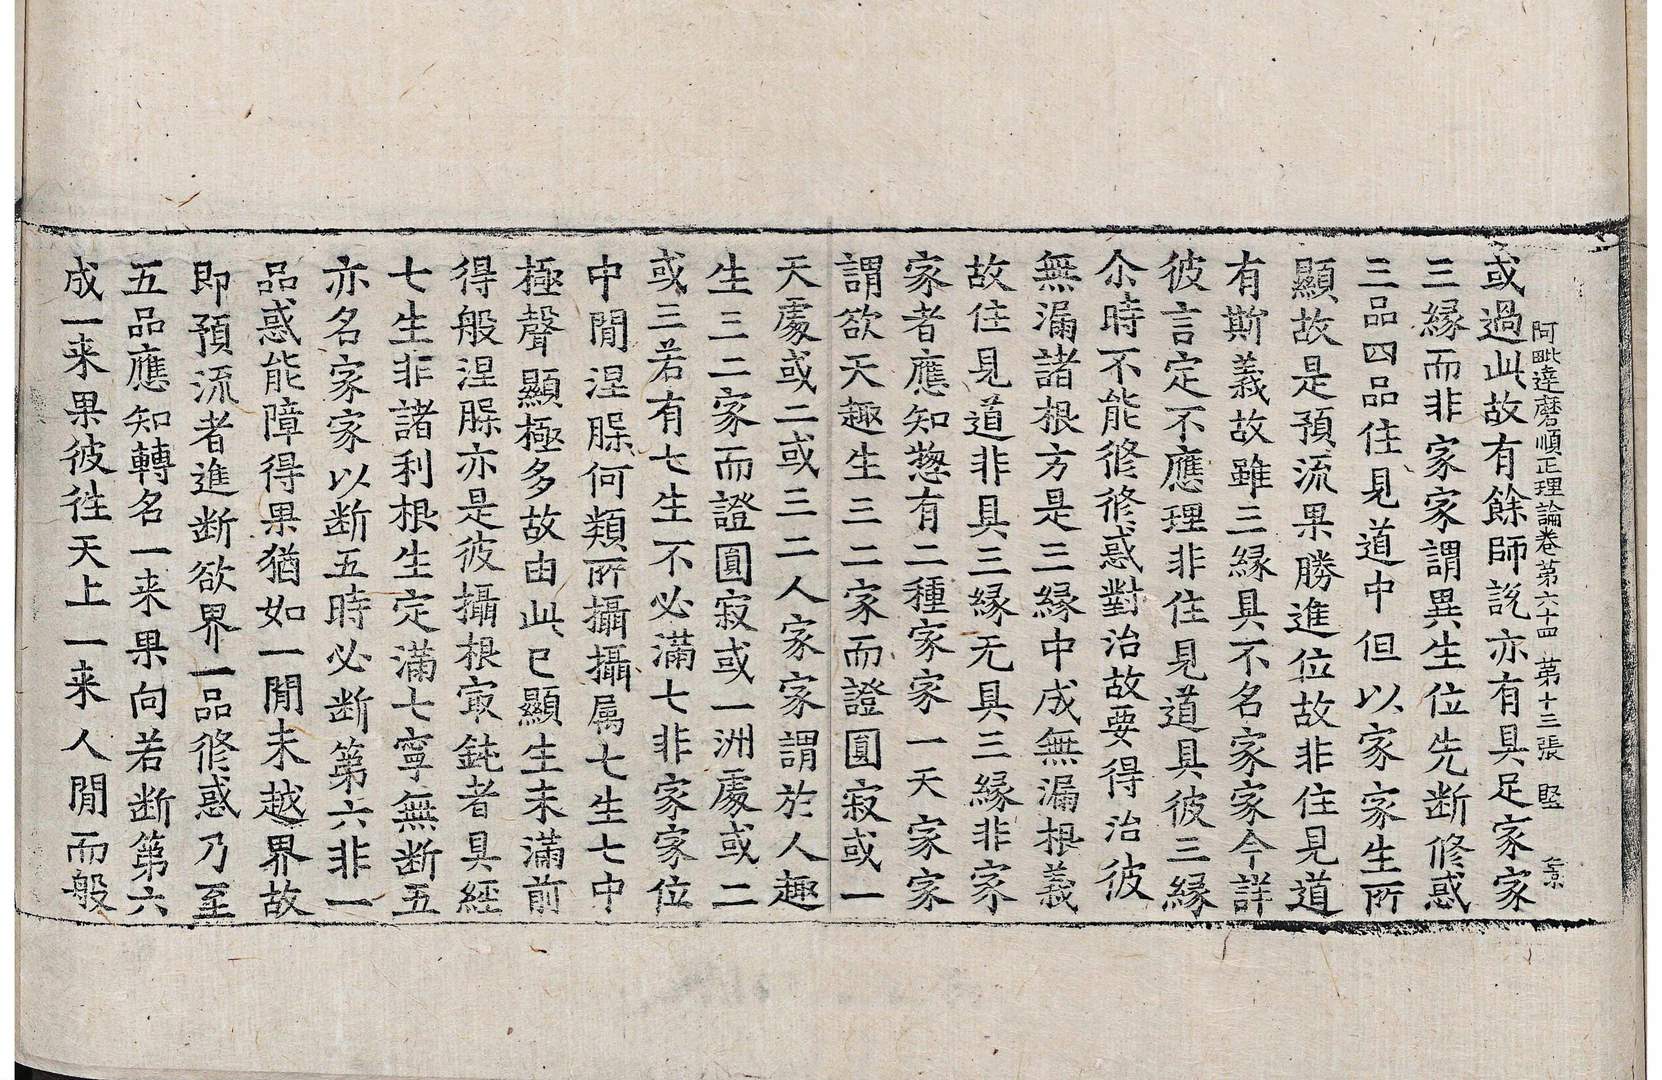 阿毗達磨順正理論卷第六十四 第十三張 堅
或過此故有餘師說亦有具足家家
三緣而非家家謂異生位先断修惑
三品四品住見道中但以家家生所
顯故是預流果勝進位故非住見道
有斯義故雖三緣具不名家家今詳
彼言定不應理非住見道具彼三緣
尒時不能修修惑對治故要得治彼
無漏諸根方是三緣中成無漏根義
故住見道非具三緣无具三緣非家
家者應知惣有二種家家一天家家
謂欲天趣生三二家而證圓寂或一
天處或二或三二人家家謂於人趣
生三二家而證圓寂或一洲處或二
或三若有七生不必滿七非家家位
中閒涅槃何類所攝攝属七生七中
極聲顯極多故由此已顯生未滿前
得般涅槃亦是彼攝根㝡鈍者具經
七生非諸利根生定滿七寧無断五
亦名家家以断五時必断第六非一
品惑能障得果猶如一閒未越界故
即預流者進断欲界一品修惑乃至
五品應知轉名一来果向若断第六
成一来果彼往天上一来人閒而般